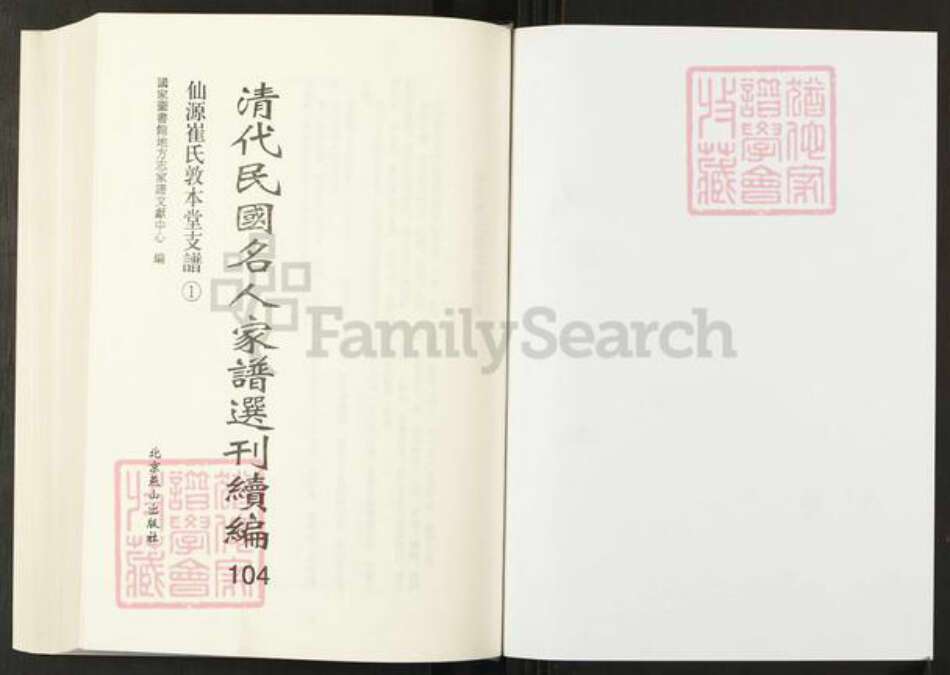 清代民國名人家譜選刊續編
104
仙源崔氏敦本堂支譜 ①
國家圖書館地方志家譜文獻中心 編
北京燕山出版社
FamilySearch